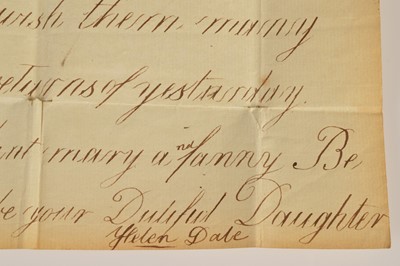 wish them many
returns of yesturday.
mary a nd fanny Be
be your Dutiful Daughter
Helen Dale